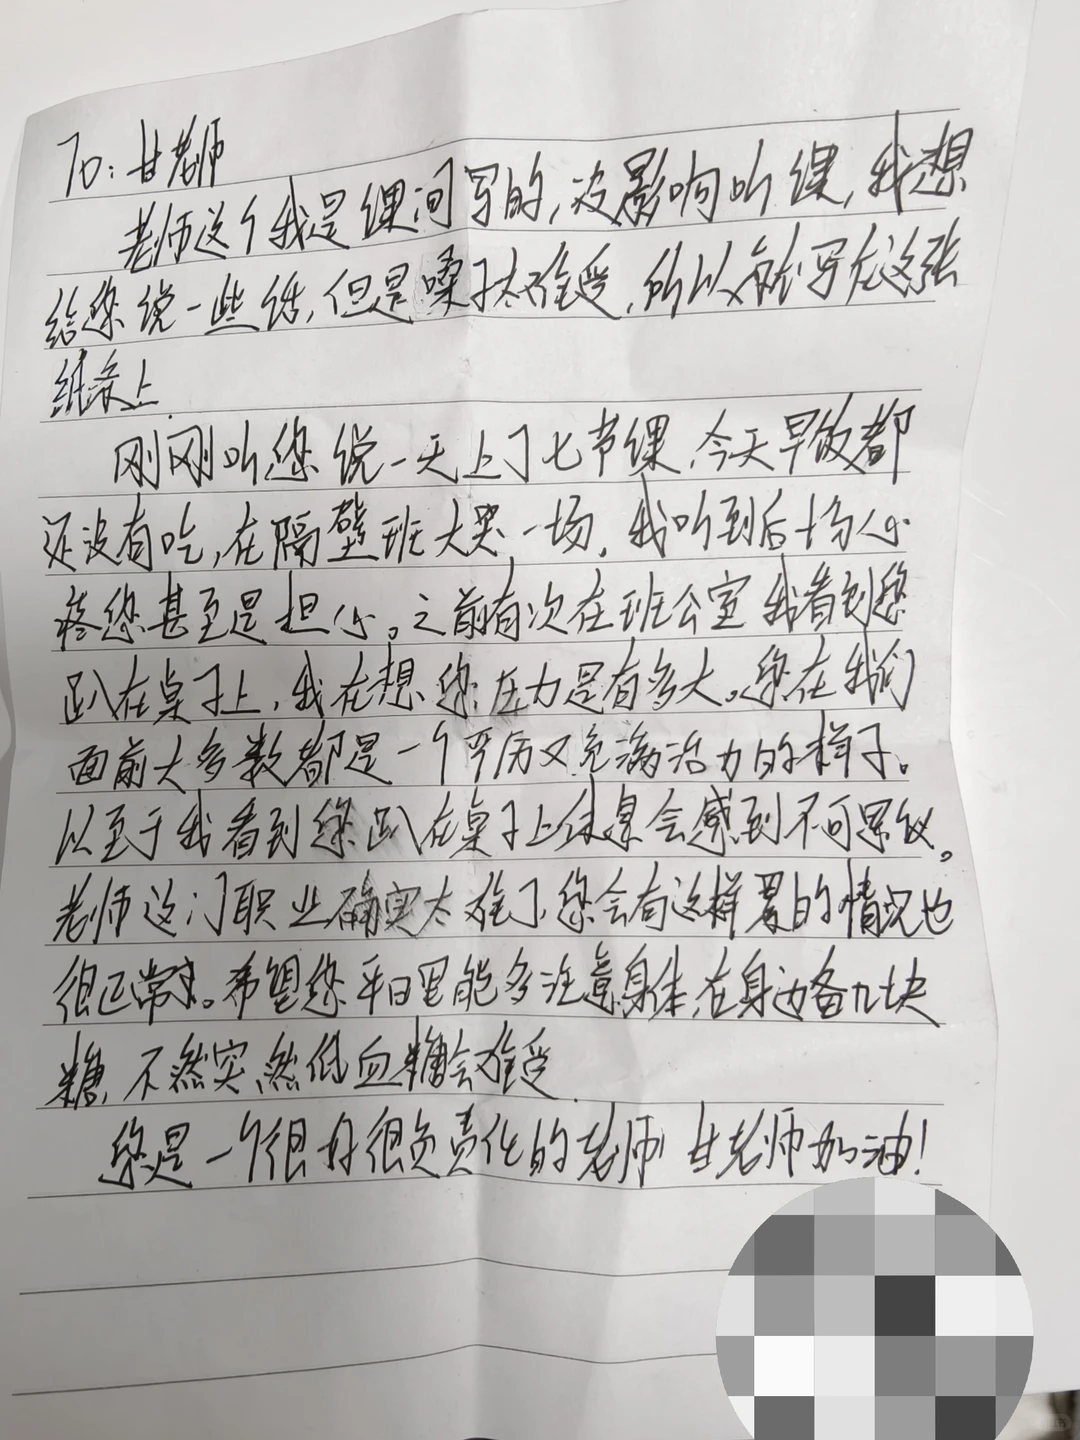 To：甘老师
老师这个我是课间写的,没影响听课,我想
给您说一些话,但是嗓子太难受,所以就写在这张
纸条上.
刚刚听您说一天上了七节课,今天早饭都
还没有吃,在隔壁班大哭一场,我听到后十分心
疼您甚至是担心。之前有次在班公室我看到您
趴在桌子上,我在想您压力是有多大。您在我们
面前大多数都是一个严厉又充满活力的样子。
以至于我看到您趴在桌子上休息会感到不可思议。
老师这门职业确实太难了,您会有这样累的情况也
很正常。希望您平日里能多注意身体,在身边备几块
糖,不然突然低血糖会难受.
您是一个很好很负责任的老师 甘老师加油!